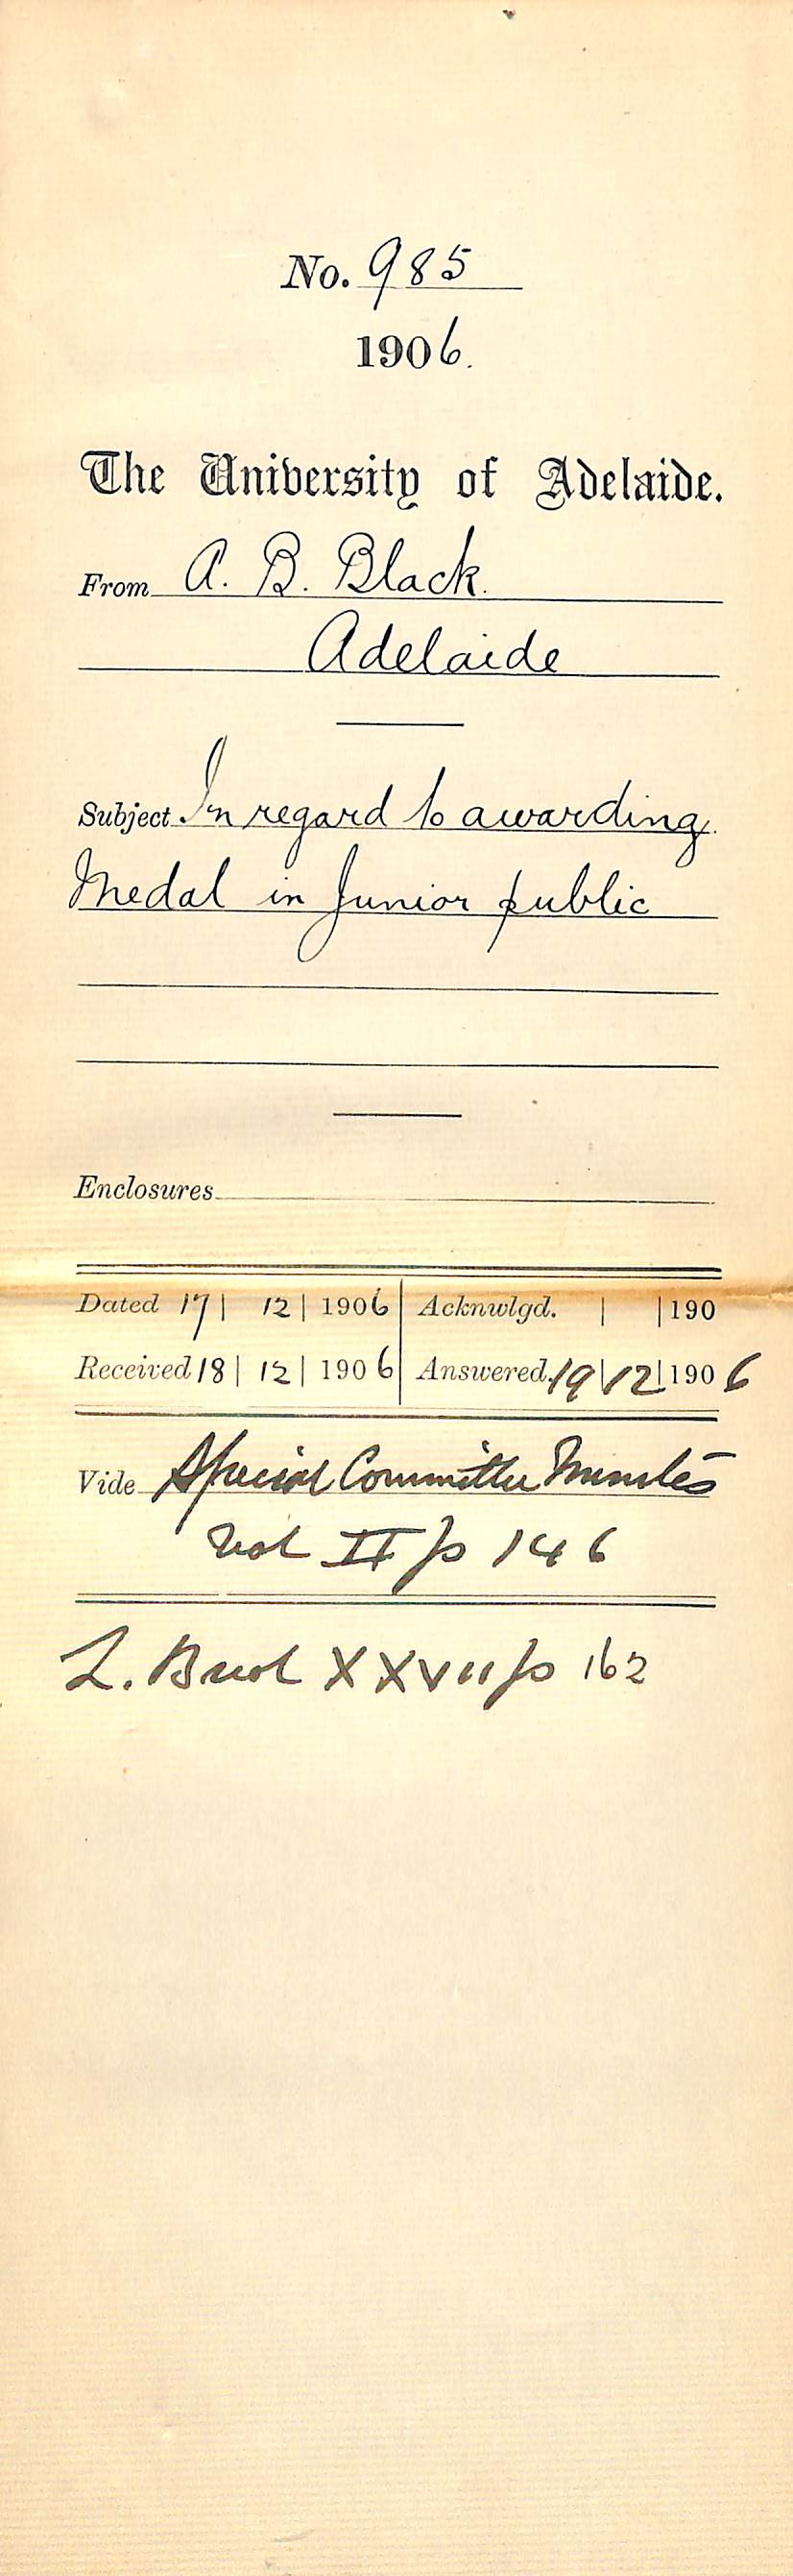 No. 985
1906.
The University of Adelaide.
From A. B. Black.
Adelaide
Subject In regard to awarding
Medal in Junior public
Enclosures
Dated 17 | 12 | 1906 Acknwlgd. | | 190
Received 18 | 12 | 1906 Answered. 19 | 12 | 1906
Vide Special Committee Minutes
Vol II p 146
L. B vol XXVII p 162